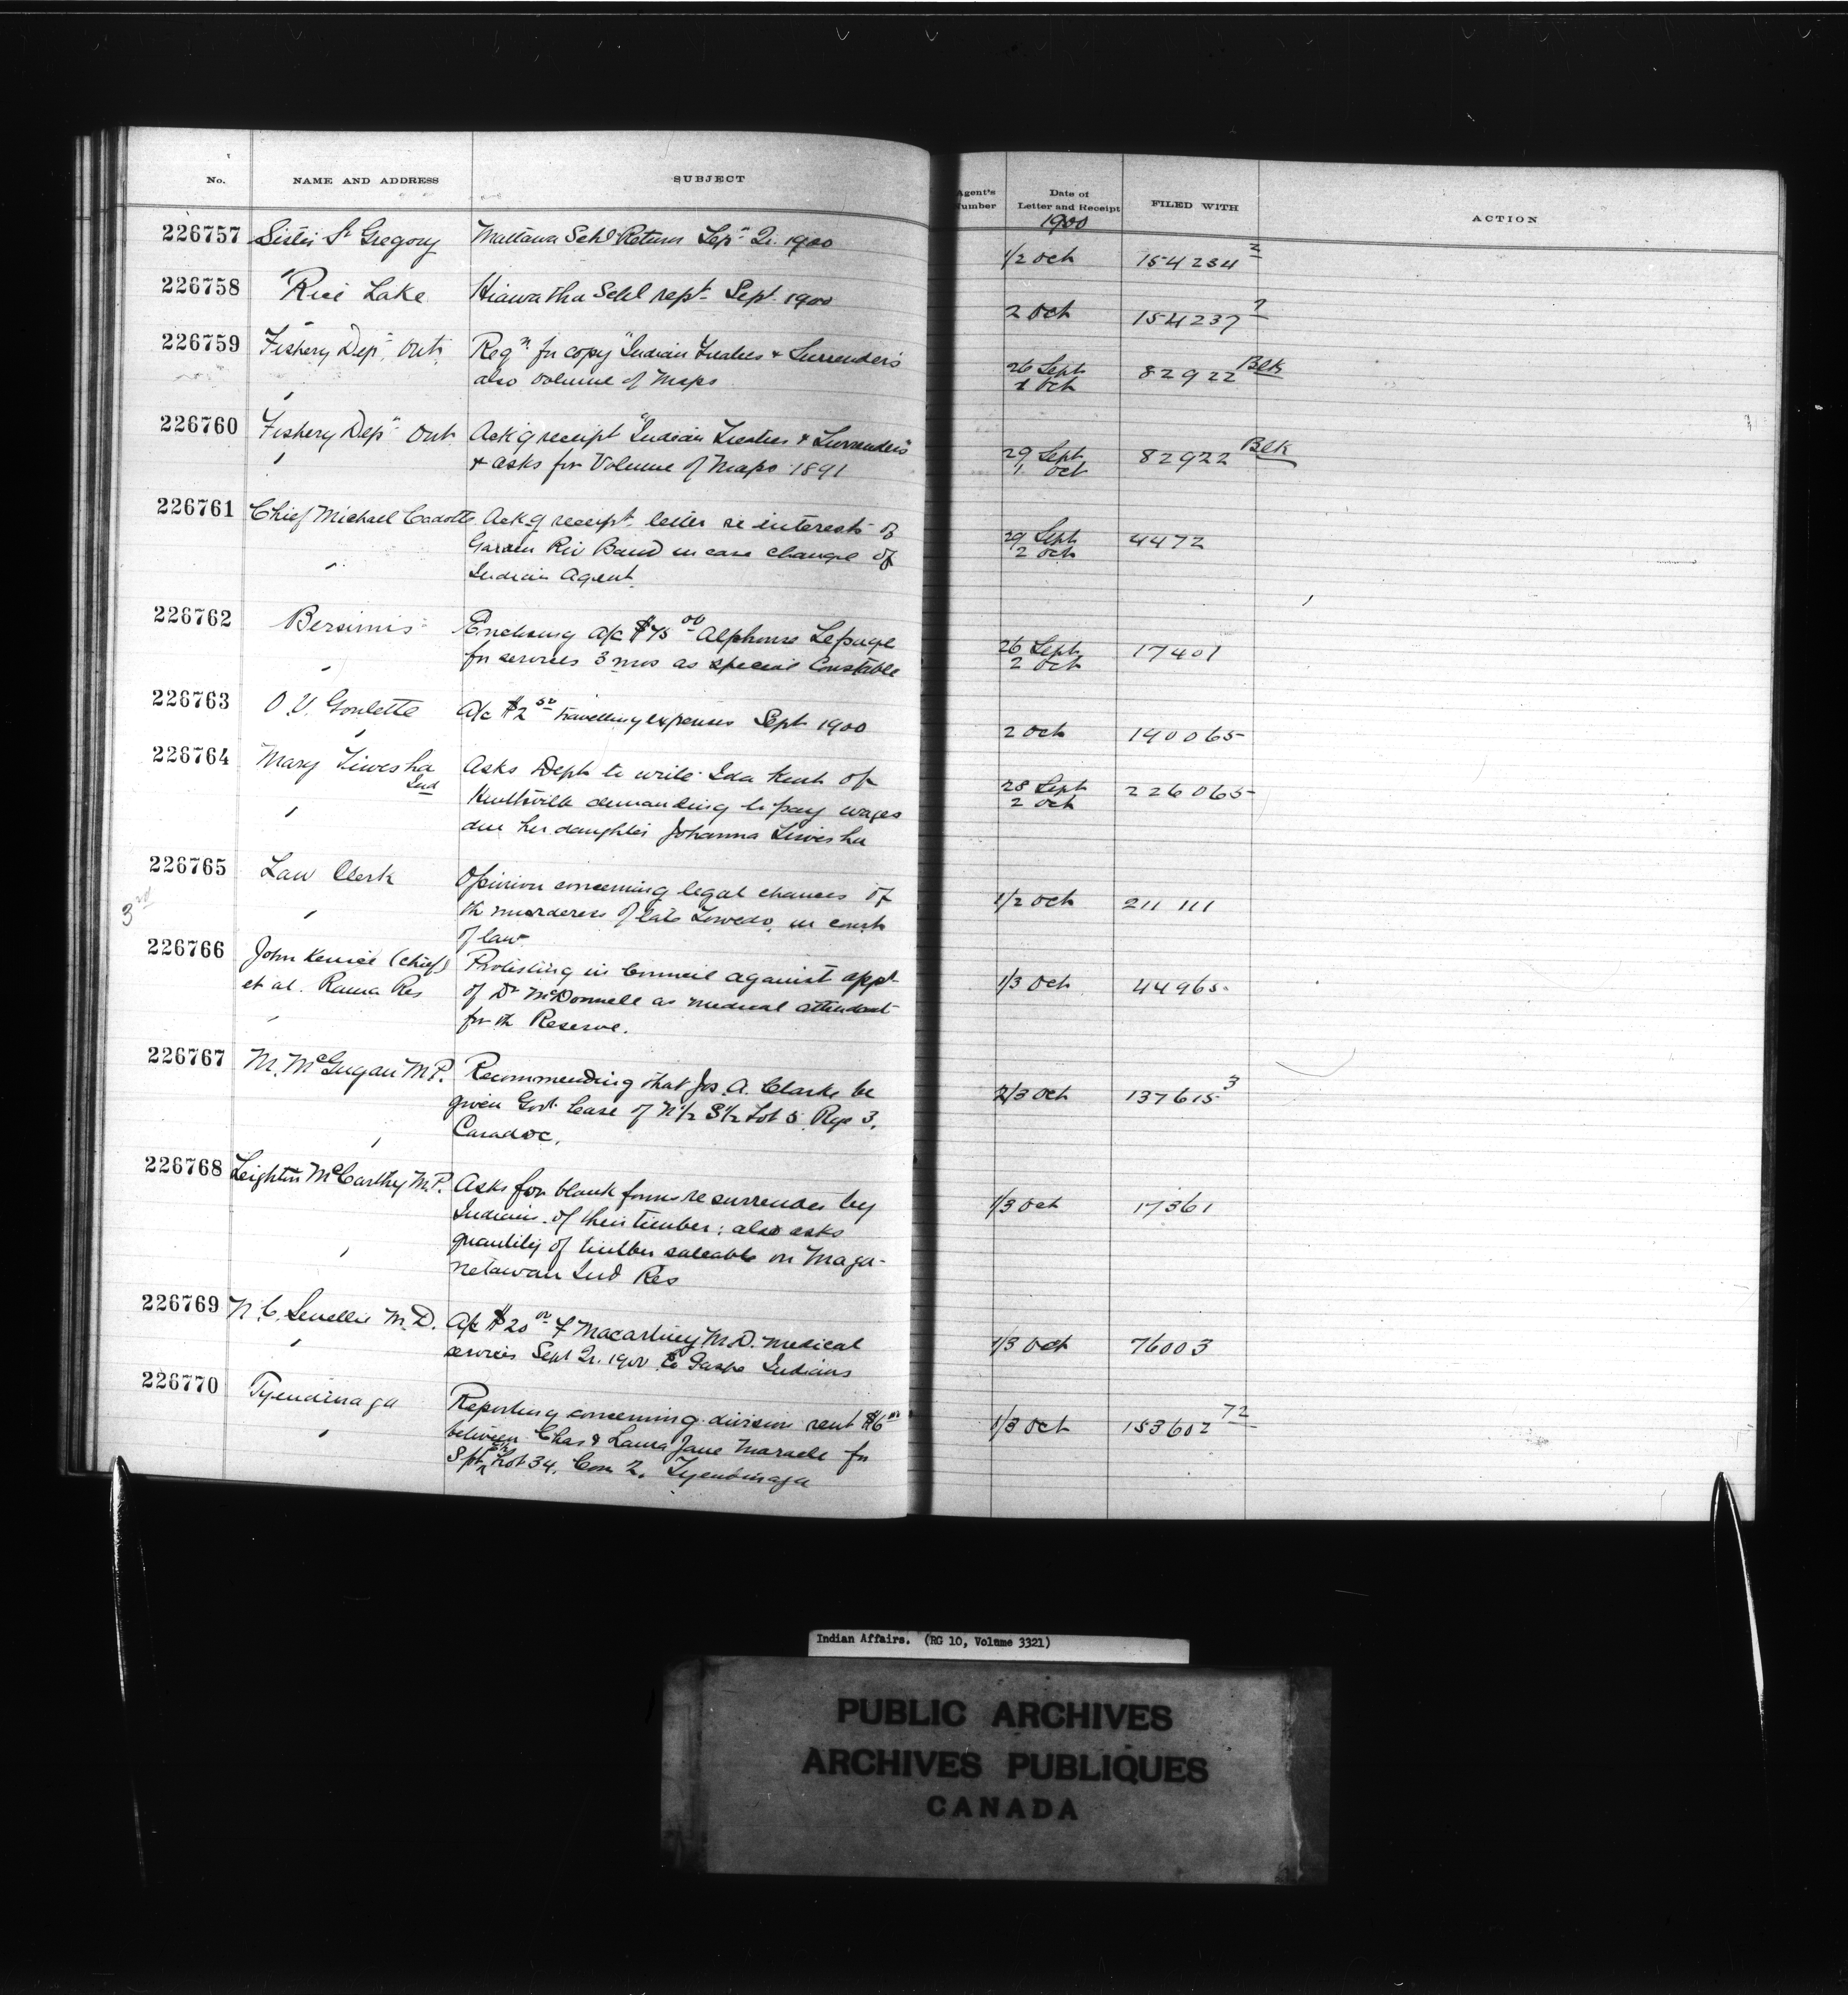 No. NAME AND ADDRESS SUBJECT Agent's Number Date of Letter and Receipt FILED WITH ACTION
1900
226757 Sister St Gregory Mattawa Schl Return Sepr Qr. 1900 1/2 Oct 154234 2
226758 Rice Lake Hiawatha Schl rept Sept. 1900 2 Oct 154237 7
226759 Fishery Dept, Ont. Reqn for copy "Indian Treaties & Surrenders 26 Sept 82922 Blk
also volume of Maps 1 Oct
226760 Fishery Dept Ont Ack'g receipt "Indian Treaties & Surrenders" 29 Sept 82922 Blk
& asks for Volume of Maps 1891 1 Oct
226761 Chief Michael Cadotte Ack'g receipt letter re interests of 29 Sept 4472
Garden Riv Band in case change of 2 Oct
Indian Agent.
226762 Bersimis Enclosing a/c $75 00 Alphonse Lepage 26 Sept 17401
for services 3 mos as special Constable 2 Oct
226763 O.V. Goulette A/c $2 50 travelling expenses Sept 1900 2 Oct 140065
226764 Mary Asks Dept to write Ida Kent of 28 Sept 226065
Ind demanding to pay wages 2 Oct
due her daughter Johanna
226765 Law Clerk Opinion concerning legal chances of 1/2 Oct 211111
3rd the murderers of late in court
of law
226766 John Kenice (Chief) Protesting in Council against appt 1/3 Oct 44965
et al. Rama Res of Dr McDonnell as medical attendant
for the Reserve.
226767 M. McGugan M.P. Recommending that Jos. A. Clarke be 2/3 Oct 137615 3
given Govt lease of N 1/2 S 1/2 Lot 5 Rge 3.
Caradoc.
226768 Leighton McCarthy M.P. Asks for blank forms re surrender by 1/3 Oct 17361
Indians of their timber: also asks
quantity of timber saleable on Maga-
netawan Ind Res
226769 N.C. M.D. A/c $20 00 F Macartney M.D. medical 1/3 Oct 76003
services Sept Qr. 1900 to Gaspe Indians
226770 Tyendinaga Reporting concerning division rent $6 00 1/3 Oct 153602 72
between Chas & Laura Jane Maracle for
S pt Lot 34, Con 2. Tyendinaga
Indian Affairs. (RG 10, Volume 3321)
PUBLIC ARCHIVES
ARCHIVES PUBLIQUES
CANADA